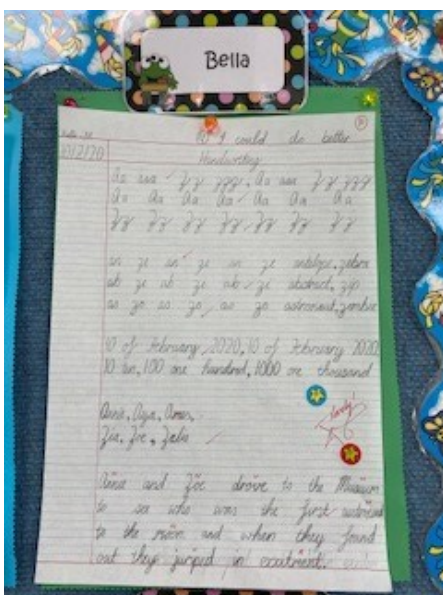 Bella
I could do better
10/2/20
Handwriting
Aa aaa Zz zzz, Aa aaa Zz zzz
Aa Aa Aa Aa Aa Aa Aa
Zz Zz Zz Zz Zz Zz Zz Zz
an ze an ze an ze antelope, zebra
ab ze ab ze ab ze abstract, zip
as zo as zo as zo astronaut, zombie
10 of February 2020, 10 of February 2020
10 ten, 100 one hundred, 1000 one thousand
Zia, Zoe,
lovely!
Annie and Zoe drove to the Museum
to see who was the first astronaut
to the moon and when they found
out they jumped in excitment.